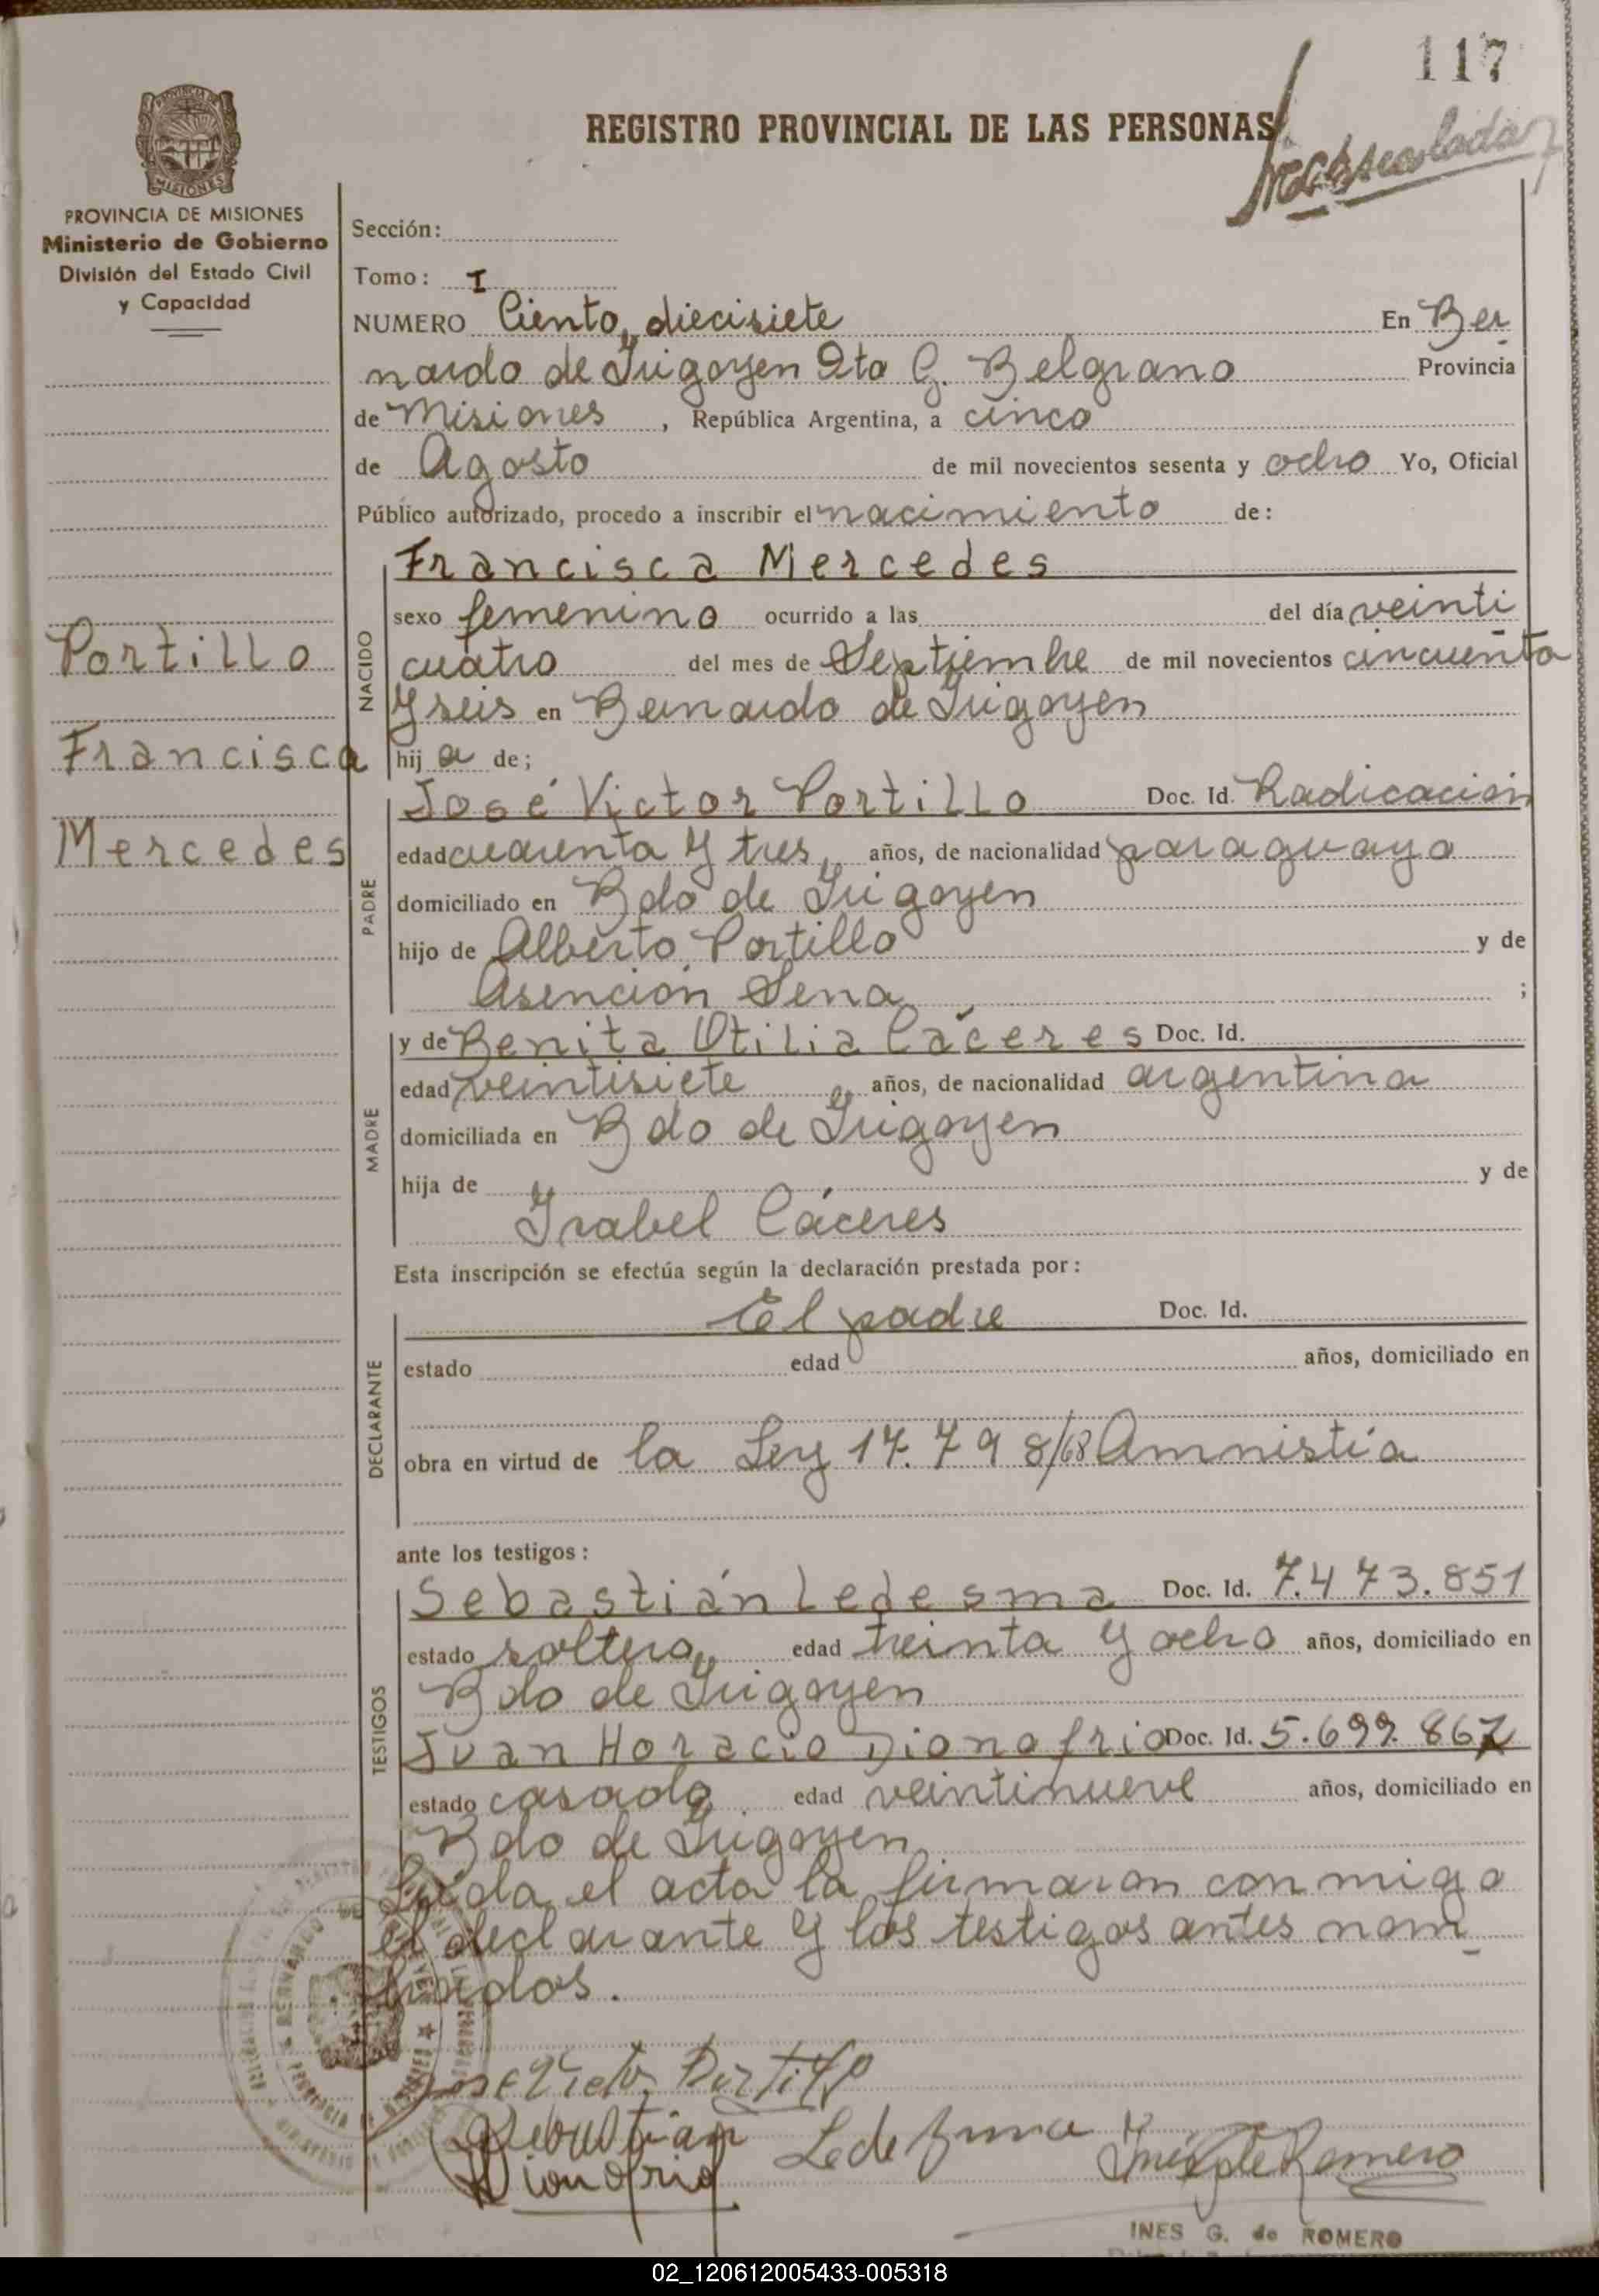 117
REGISTRO PROVINCIAL DE LAS PERSONAS
PROVINCIA DE MISIONES
Ministerio de Gobierno
División del Estado Civil
y Capacidad
Sección:
Tomo: I
NUMERO Ciento diecisiete En Ber
nardo de Irigoyen Dto G. Belgrano Provincia
de Misiones, República Argentina, a cinco
de Agosto de mil novecientos sesenta y ocho Yo, Oficial
Público autorizado, procedo a inscribir el nacimiento de:
Portillo
Francisca
Mercedes
NACIDO
Francisca Mercedes
sexo femenino ocurrido a las del día veinti
cuatro del mes de Septiembre de mil novecientos cincuenta
y seis en Bernardo de Irigoyen
hij a de;
PADRE
José Victor Portillo Doc. Id. Radicación
edad cuarenta y tres, años, de nacionalidad paraguaya
domiciliado en Bdo de Irigoyen
hijo de Alberto Portillo y de
Asención Sena ;
MADRE
y de Benita Otilia Cáceres Doc. Id.
edad veintisiete años, de nacionalidad argentina
domiciliada en Bdo de Irigoyen
hija de y de
Isabel Cáceres
Esta inscripción se efectúa según la declaración prestada por:
DECLARANTE
El padre Doc. Id.
estado edad años, domiciliado en
obra en virtud de la Ley 17.798/68 Amnistía
ante los testigos:
TESTIGOS
Sebastián Ledesma Doc. Id. 7.473.851
estado soltero, edad treinta y ocho años, domiciliado en
Bdo de Irigoyen
Juan Horacio Dionofrio Doc. Id. 5.699.867
estado casado edad veintinueve años, domiciliado en
Bdo de Irigoyen
Leída el acta la firmaron conmigo
el declarante y los testigos antes nom-
brados.
Jose Victor Portillo
Sebastian Ledesma
Dionofrio
Inés G de Romero
INES G. de ROMERO
02_120612005433-005318